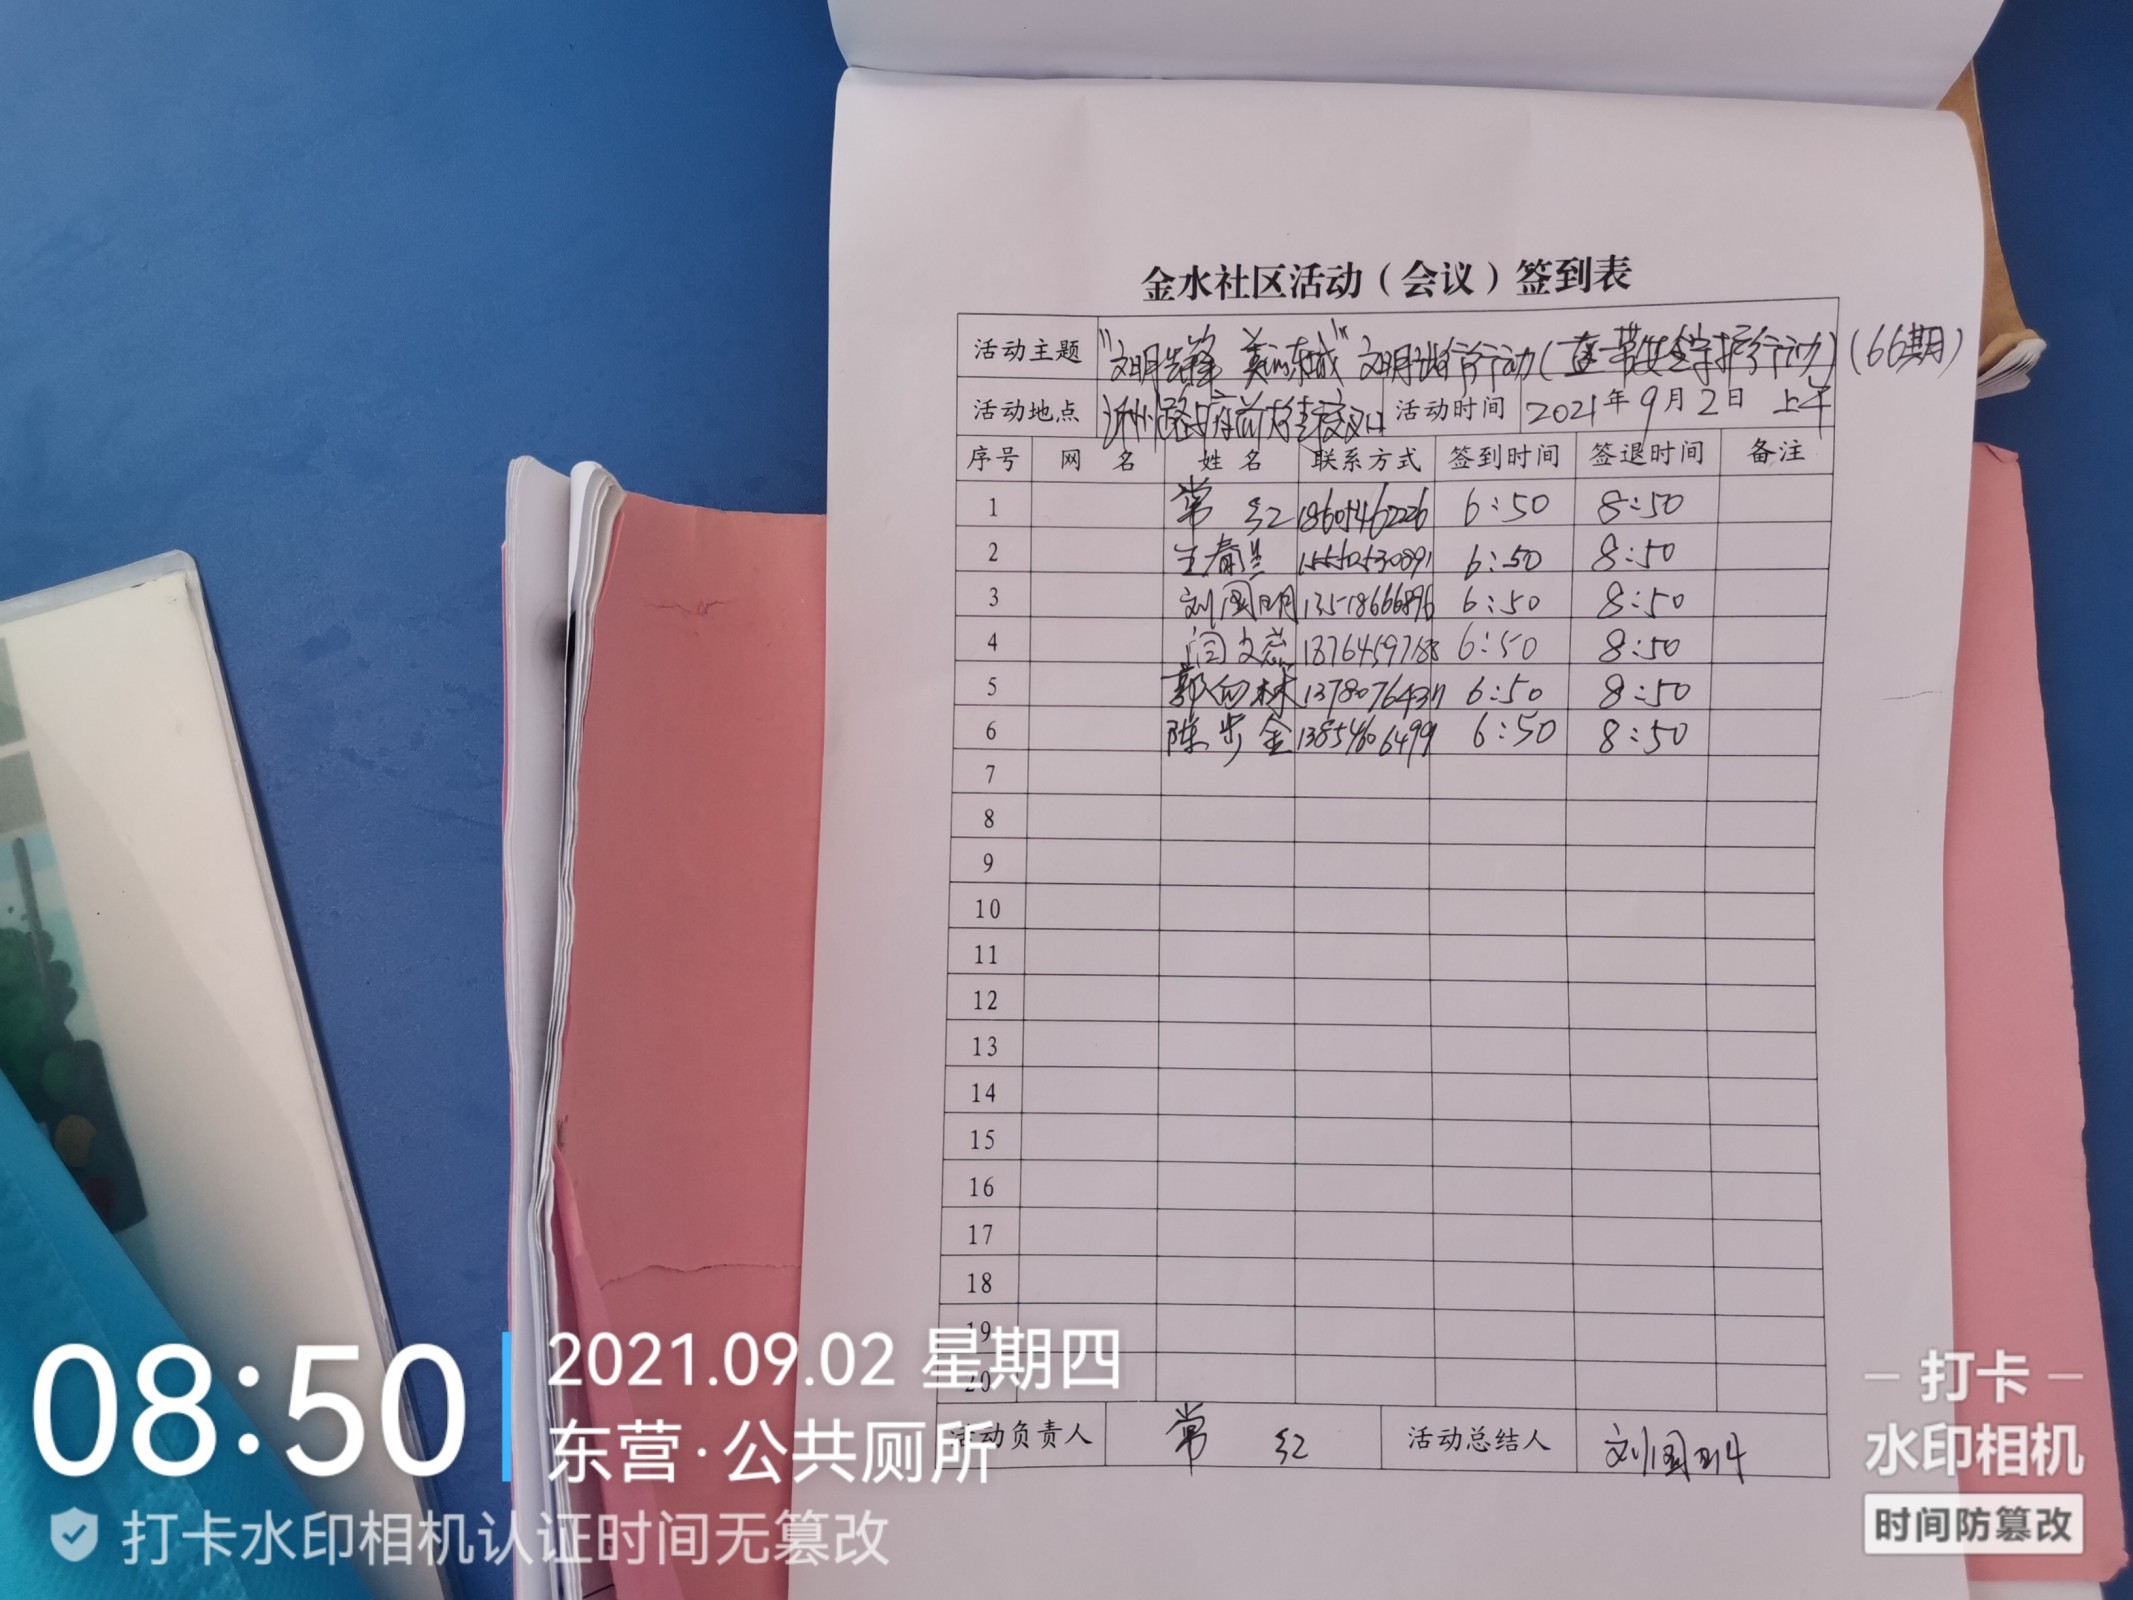 金水社区活动（会议）签到表
活动主题 "文明先锋 美丽东城" 文明出行行动( 一带安全守护行动)(66期)
活动地点 沂州路与府前大街交叉口 活动时间 2021年9月2日 上午
序号 网 名 姓 名 联系方式 签到时间 签退时间 备注
1 常 红 18605462226 6:50 8:50
2 王春兰 15550530891 6:50 8:50
3 刘国明 13518666896 6:50 8:50
4 闫文蕊 13764597188 6:50 8:50
5 郭向林 6:50 8:50
6 陈步金 13854606499 6:50 8:50
7
8
9
10
11
12
13
14
15
16
17
18
19
20
活动负责人 常 红 活动总结人 刘国明
08:50
2021.09.02 星期四
东营·公共厕所
打卡水印相机认证时间无篡改
打卡
水印相机
时间防篡改